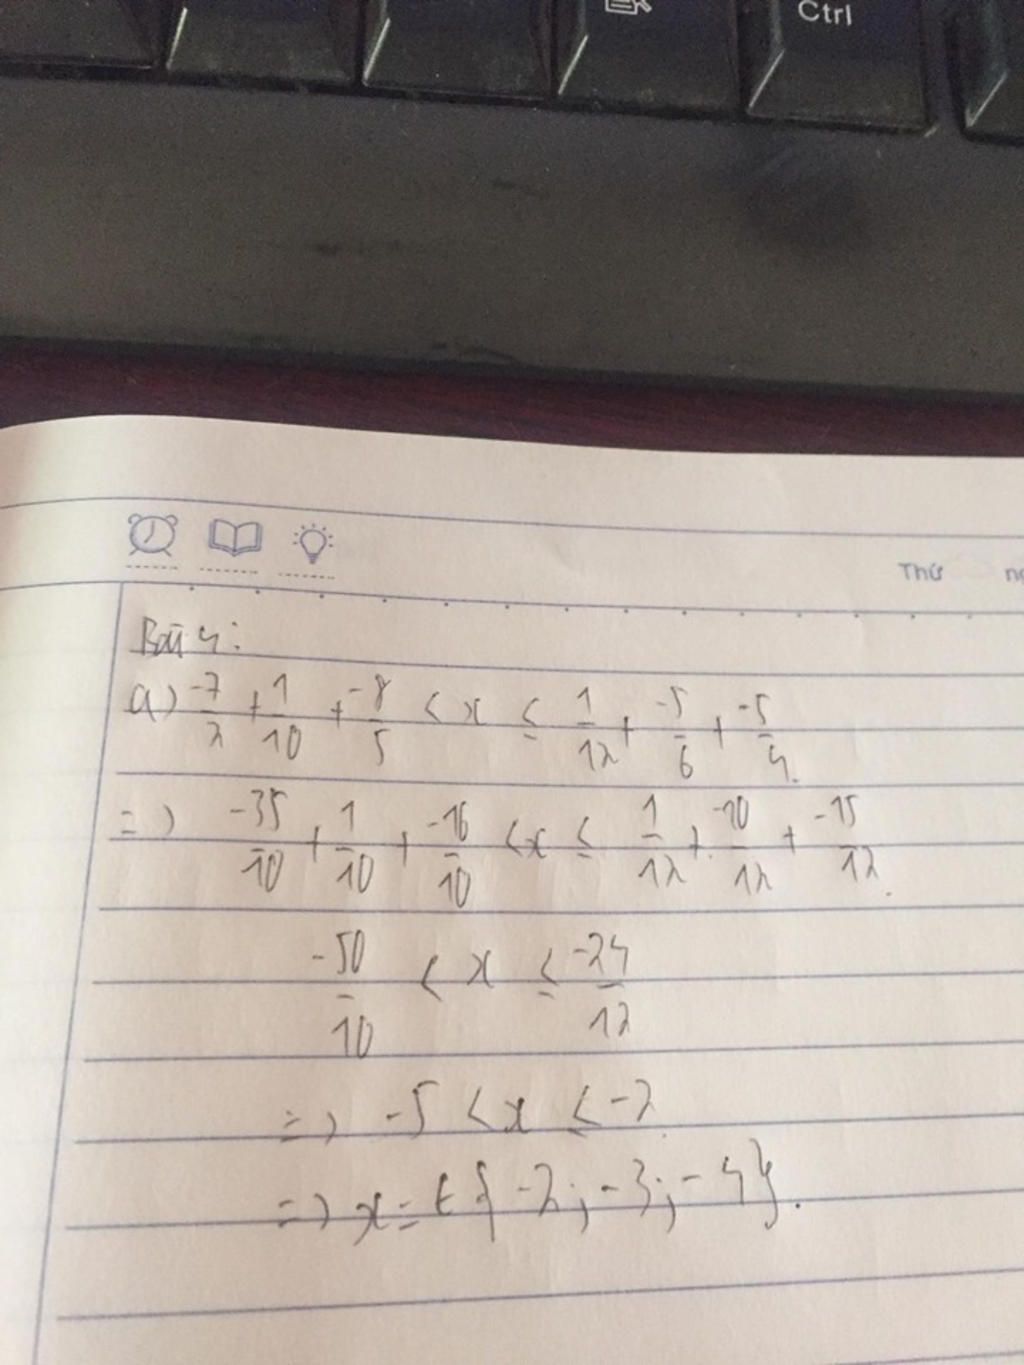 Ctrl
Thứ
Bài 4:
a) -7/2 + 1/10 + -8/5 < x ≤ 1/12 + -5/6 + -5/4.
=> -35/10 + 1/10 + -16/10 < x ≤ 1/12 + -10/12 + -15/12.
-50/10 < x ≤ -24/12
=> -5 < x ≤ -2
=> x = ∈ { -2; -3; -4}.